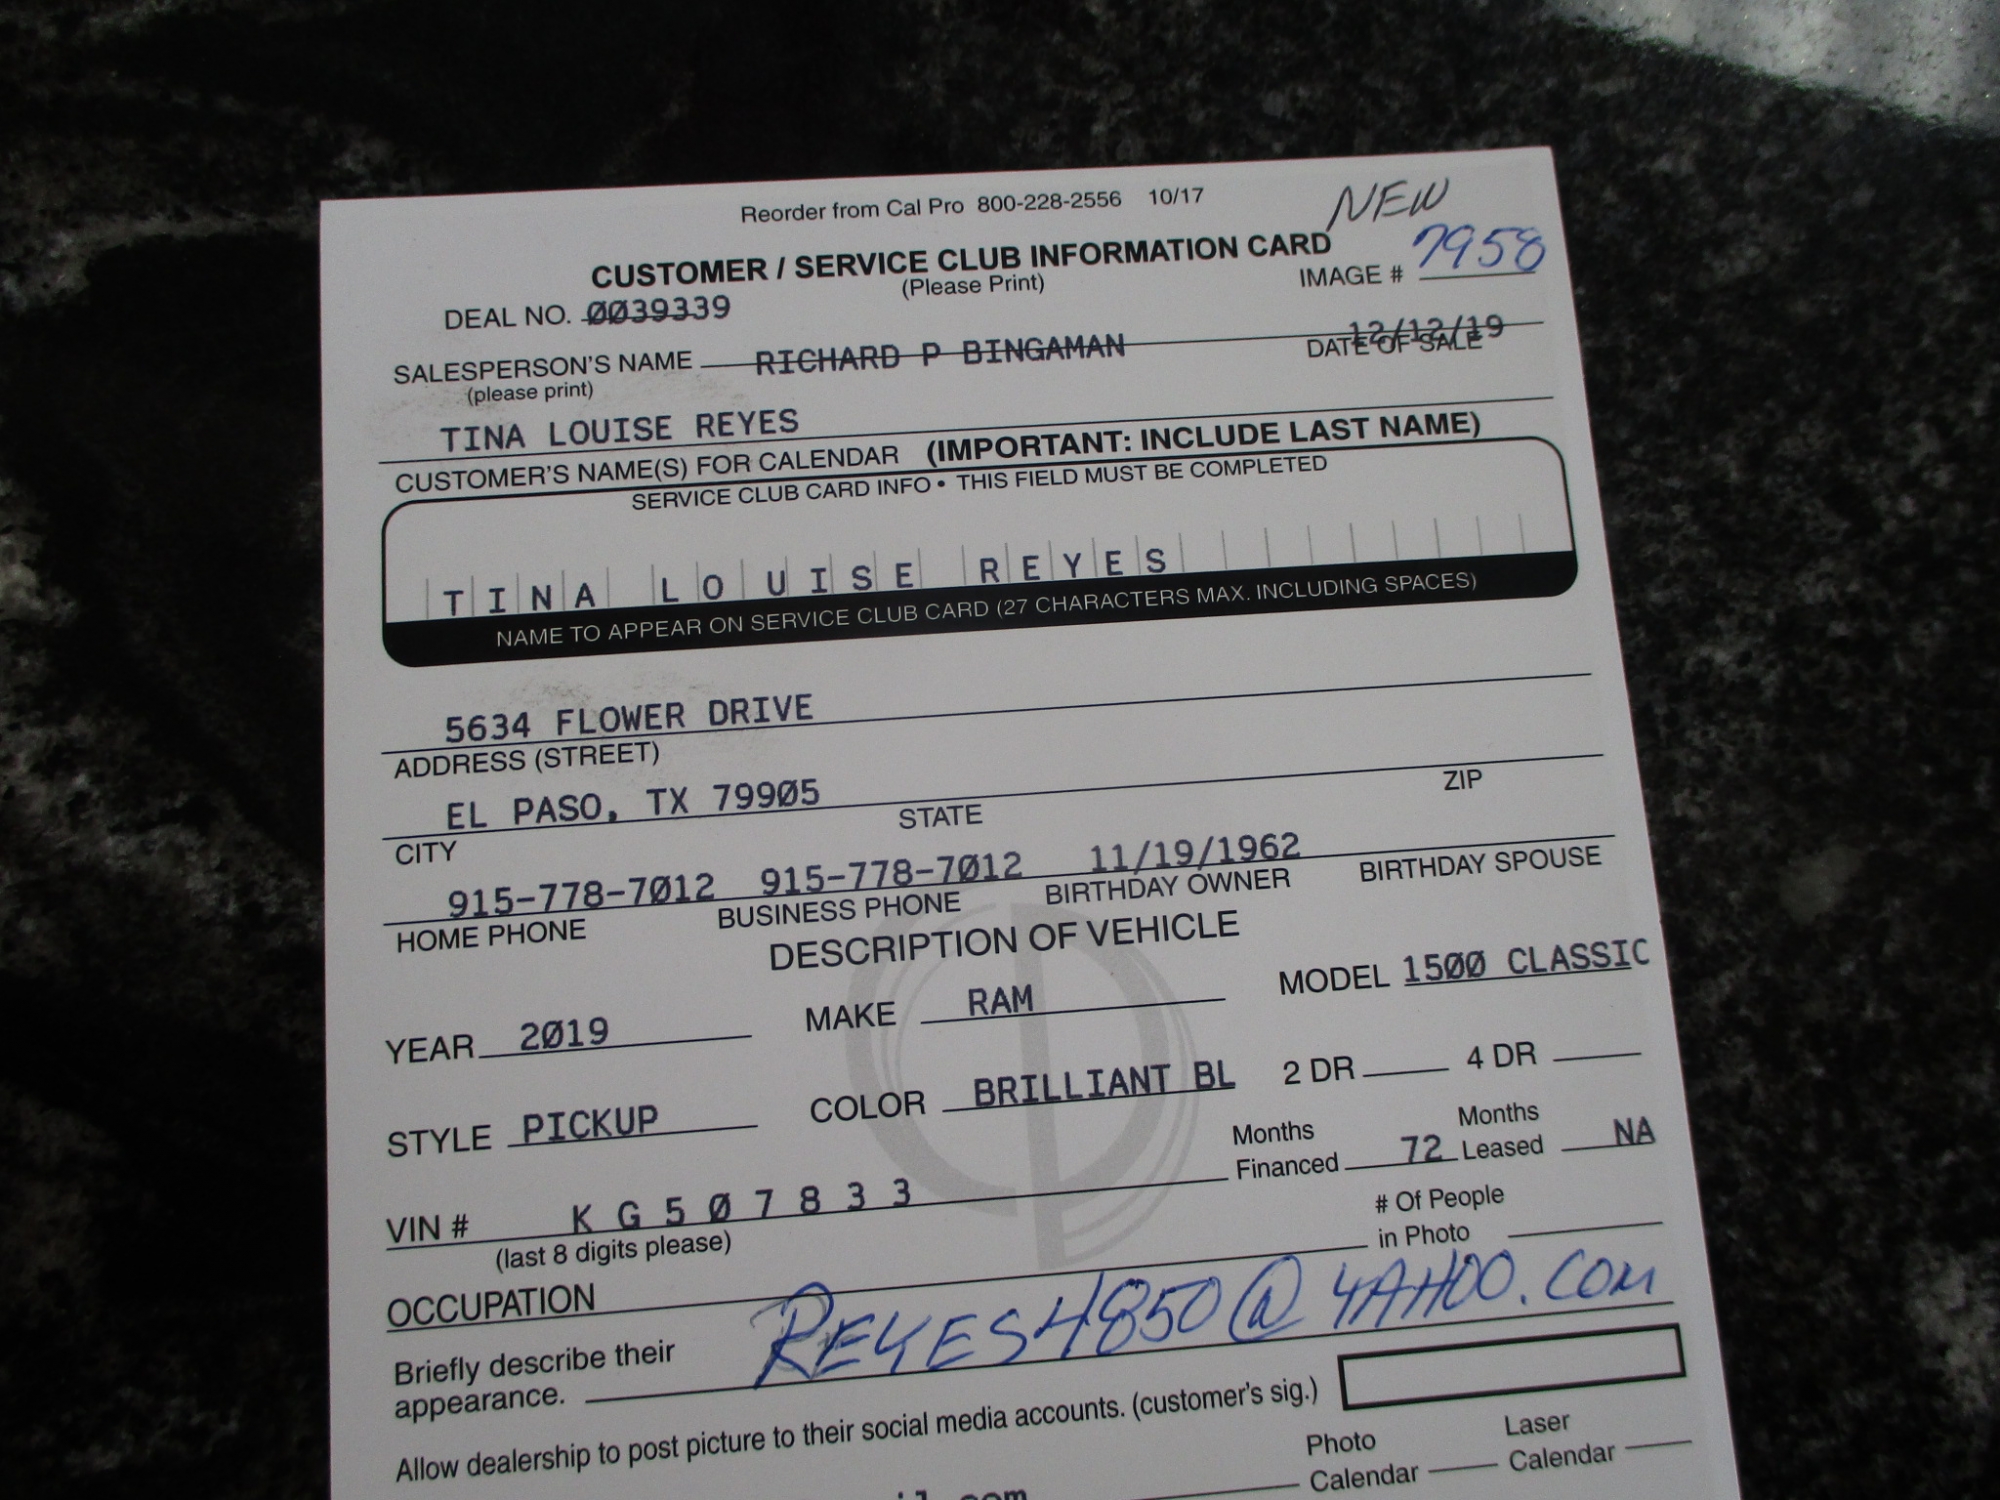 Reorder from Cal Pro 800-228-2556 10/17
NEW
CUSTOMER / SERVICE CLUB INFORMATION CARD
(Please Print)
IMAGE # 7958
DEAL NO. 0039339
SALESPERSON'S NAME RICHARD P BINGAMAN DATE OF SALE 12/12/19
(please print)
TINA LOUISE REYES
CUSTOMER'S NAME(S) FOR CALENDAR (IMPORTANT: INCLUDE LAST NAME)
SERVICE CLUB CARD INFO • THIS FIELD MUST BE COMPLETED
TINA LOUISE REYES
NAME TO APPEAR ON SERVICE CLUB CARD (27 CHARACTERS MAX. INCLUDING SPACES)
5634 FLOWER DRIVE
ADDRESS (STREET)
EL PASO, TX 79905
CITY STATE ZIP
915-778-7012 915-778-7012 11/19/1962
HOME PHONE BUSINESS PHONE BIRTHDAY OWNER BIRTHDAY SPOUSE
DESCRIPTION OF VEHICLE
YEAR 2019 MAKE RAM MODEL 1500 CLASSIC
STYLE PICKUP COLOR BRILLIANT BL 2 DR 4 DR
Months Financed 72 Months Leased NA
VIN # KG507833
(last 8 digits please)
# Of People in Photo
OCCUPATION
Briefly describe their appearance. REYES4850@YAHOO.COM
Allow dealership to post picture to their social media accounts. (customer's sig.)
Photo Calendar Laser Calendar